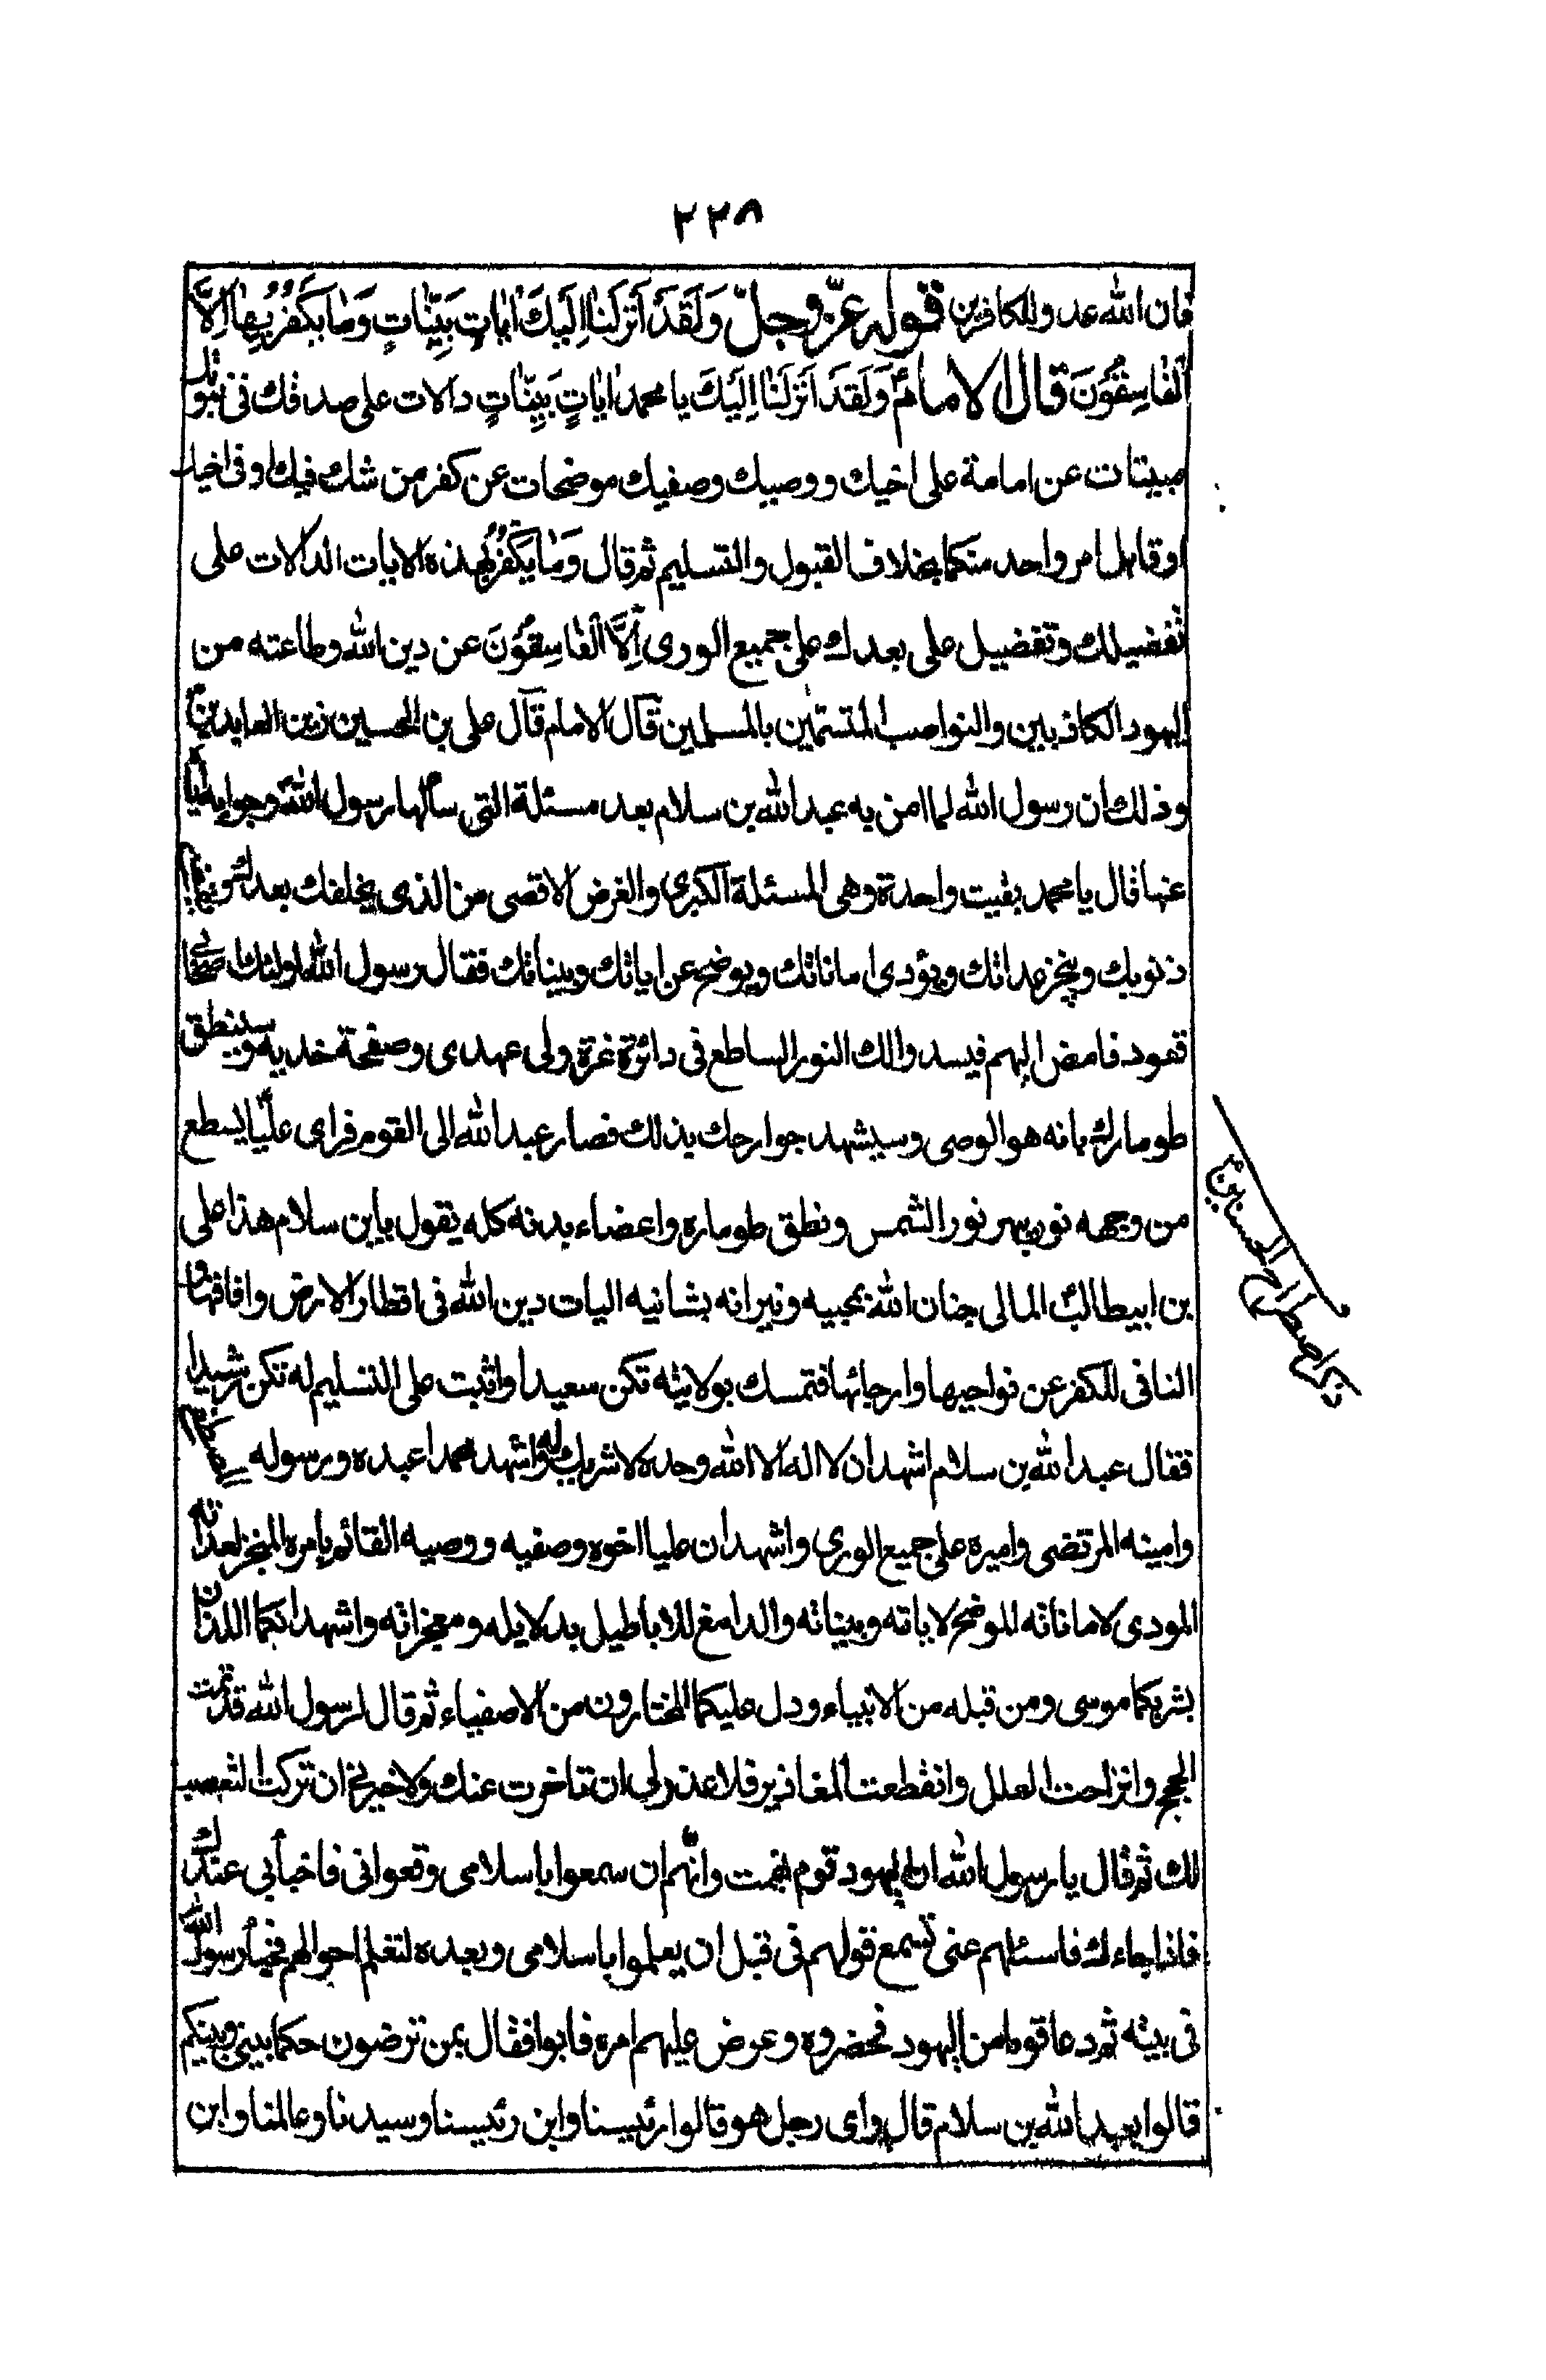 ٢٢٨
فان الله عدو للكافرين قوله عزّ وجلّ وَلَقَدْ اَنْزَلْنَا اِلَيْكَ اٰيَاتٍ بَيِّنَاتٍ وَمَا يَكْفُرُ بِهَا اِلَّا
الْفَاسِقُونَ قال الامامؑ وَلَقَدْ اَنْزَلْنَا اِلَيْكَ يا محمد اٰيَاتٍ بَيِّنَاتٍ دالات على صدقك فى نبوتك
مبينات عن امامة على اخيك ووصيك وصفيك موضحات عن كفر من شك فيك او فى اخيك
او قابل امر واحد منكما بخلاف القبول والتسليم ثم قال وَمَا يَكْفُرُ بهذه الايات الدالات على
تفضيلك وتفضيل على بعدك على جميع الورى اِلَّا الْفَاسِقُونَ عن دين الله وطاعته من
اليهود الكاذبين والنواصب المتسمّين بالمسلمين قال الامام قال على بن الحسين زين العابدينؑ
وذلك ان رسول الله لما امن به عبد الله بن سلام بعد مسئلة التى سألها رسول الله وجوابه اياه
عنها قال يا محمد بقيت واحدة وهى المسئلة الكبرى والغرض الاقصى من الذى يخلفك بعدك ويقضى
ذنوبك وينجز عداتك ويؤدى اماناتك ويوضح عن اياتك وبيناتك فقال رسول الله اولئك اصحابى
قعود فامض اليهم فيسد والك النور الساطع فى دائرة غرة ولى عهدى وصفحة خديه وسينطق
طومارك بانه هو الوصى وسيشهد جوارحك بذلك فصار عبد الله الى القوم فراى عليّا يسطع
من وجهه نور يبهر نور الشمس ونطق طوماره واعضاء بدنه كله يقول يابن سلام هذا على
بن ابيطالبؑ المالى جنان الله بمحبيه ونيرانه بشانيه الباث دين الله فى اقطار الارض وافاقها و
النافى للكفر عن نواحيها وارجائها فتمسك بولايته تكن سعيدا واثبت على التسليم له تكن رشيدا
فقال عبد الله بن سلام اشهد ان لا اله الا الله وحده لا شريك له واشهد محمدا عبده ورسوله المصطفى
وامينه المرتضى واميره على جميع الورى واشهد ان عليا اخوه وصفيه ووصيه القائم بامره المنجز لعداته
المودى لاماناته الموضح لاياته وبيناته والدامغ للاباطيل بدلايله ومعجزاته واشهد انكما اللذان
بشر بكما موسى ومن قبله من الانبياء ودل عليكما المختارون من الاصفياء ثم قال لرسول الله قد تمت
الحجج وانزاحت العلل وانقطعت المعاذير فلا عذر لى ان تاخرت عنك ولا خير فى ان تركت التعصب
لك ثم قال يا رسول الله ان اليهود قوم بهت وانّهم ان سمعوا باسلامى وقعوا فى فاخبأنى عندك
فاذا جاءك فاسئلهم عنى تسمع قولهم فى قبل ان يعلموا باسلامى وبعده لتعلم احوالهم فخبأه رسول الله
فى بيته ثم دعا قوما من اليهود فحضروه وعرض عليهم امره فابوا فقال بمن ترضون حكما بينى وبينكم
قالوا بعبد الله بن سلام قال واى رجل هو قالوا رئيسنا وابن رئيسنا وسيدنا وعالمنا وابن